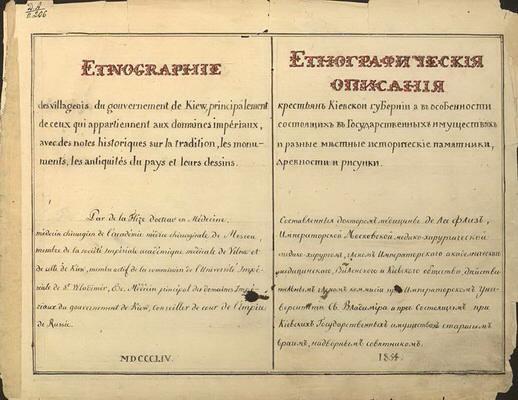 Д.А.
П. 206
ETNOGRAPHIE
des villageois du gouvernement de Kiew, principalement
de ceux qui appartiennent aux domaines impériaux,
avec des notes historiques sur la tradition, les monu-
ments, les antiquités du pays et leurs dessins.
Par de la Flize docteur en Médecine,
médecin chirurgien de l'académie médico chirurgicale de Moscou,
membre de la société Impériale académique médicale de Vilna et
de celle de Kiew, membre actif de la commission de l'Université Impé-
riale de St Wladimir, Ex. Médecin principal des domaines Impé-
riaux du gouvernement de Kiew, conseiller de cour de l'Empire
de Russie.
MDCCCLIV.
ЕТНОГРАФИЧЕСКІЯ
ОПИСАНІЯ
крестьянъ Кіевской губерніи а въ особенности
состоящихъ въ Государственныхъ имуществахъ
и разные мѣстные историческіе памятники,
древности и рисунки.
Составленныя докторомъ медицины де Ла Флизъ,
Императорской Московской медико-хирургической
медико-хирургомъ, членомъ Императорского академическаго
медицинскаго, Виленского и Кіевского общества, дѣйстви-
тельнымъ членомъ коммисіи при Императорскомъ Уни-
верситетѣ Св. Владиміра и проч. Состоящимъ при
Кіевскихъ Государственныхъ имуществахъ старшимъ
врачемъ, надворнымъ совѣтникомъ.
1854.